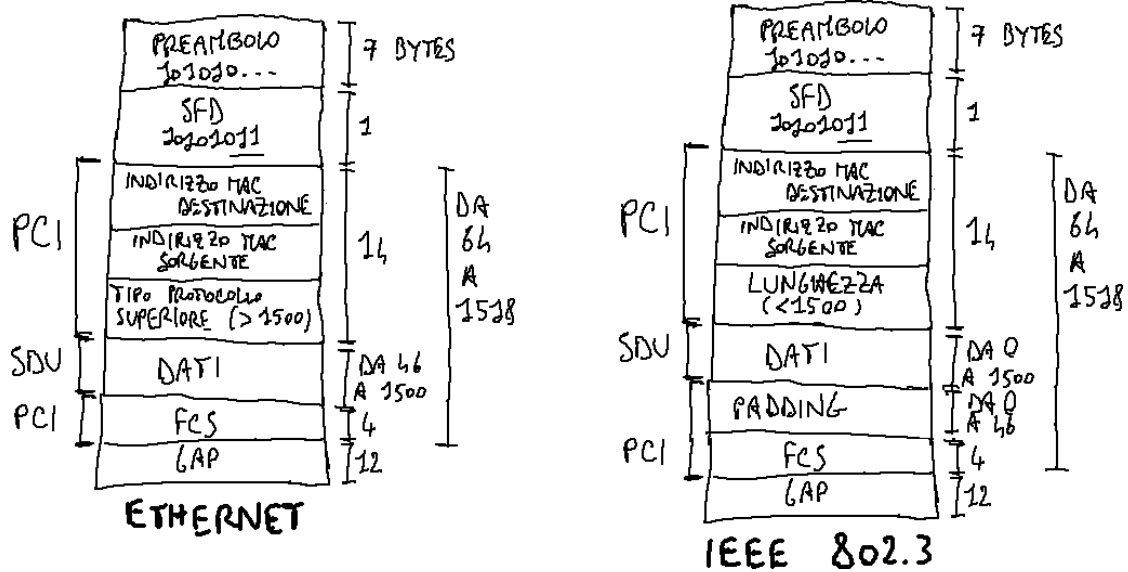 PREAMBOLO
101010...
7 BYTES
SFD
10101011
1
INDIRIZZO MAC
DESTINAZIONE
INDIRIZZO MAC
SORGENTE
TIPO PROTOCOLLO
SUPERIORE (>1500)
PCI
14
DA
64
A
1518
SDU
DATI
DA 46
A 1500
PCI
FCS
4
GAP
12
ETHERNET
PREAMBOLO
101010...
7 BYTES
SFD
10101011
1
INDIRIZZO MAC
DESTINAZIONE
INDIRIZZO MAC
SORGENTE
LUNGHEZZA
(<1500)
PCI
14
DA
64
A
1518
SDU
DATI
DA 0
A 1500
PADDING
DA 0
A 46
PCI
FCS
4
GAP
12
IEEE 802.3